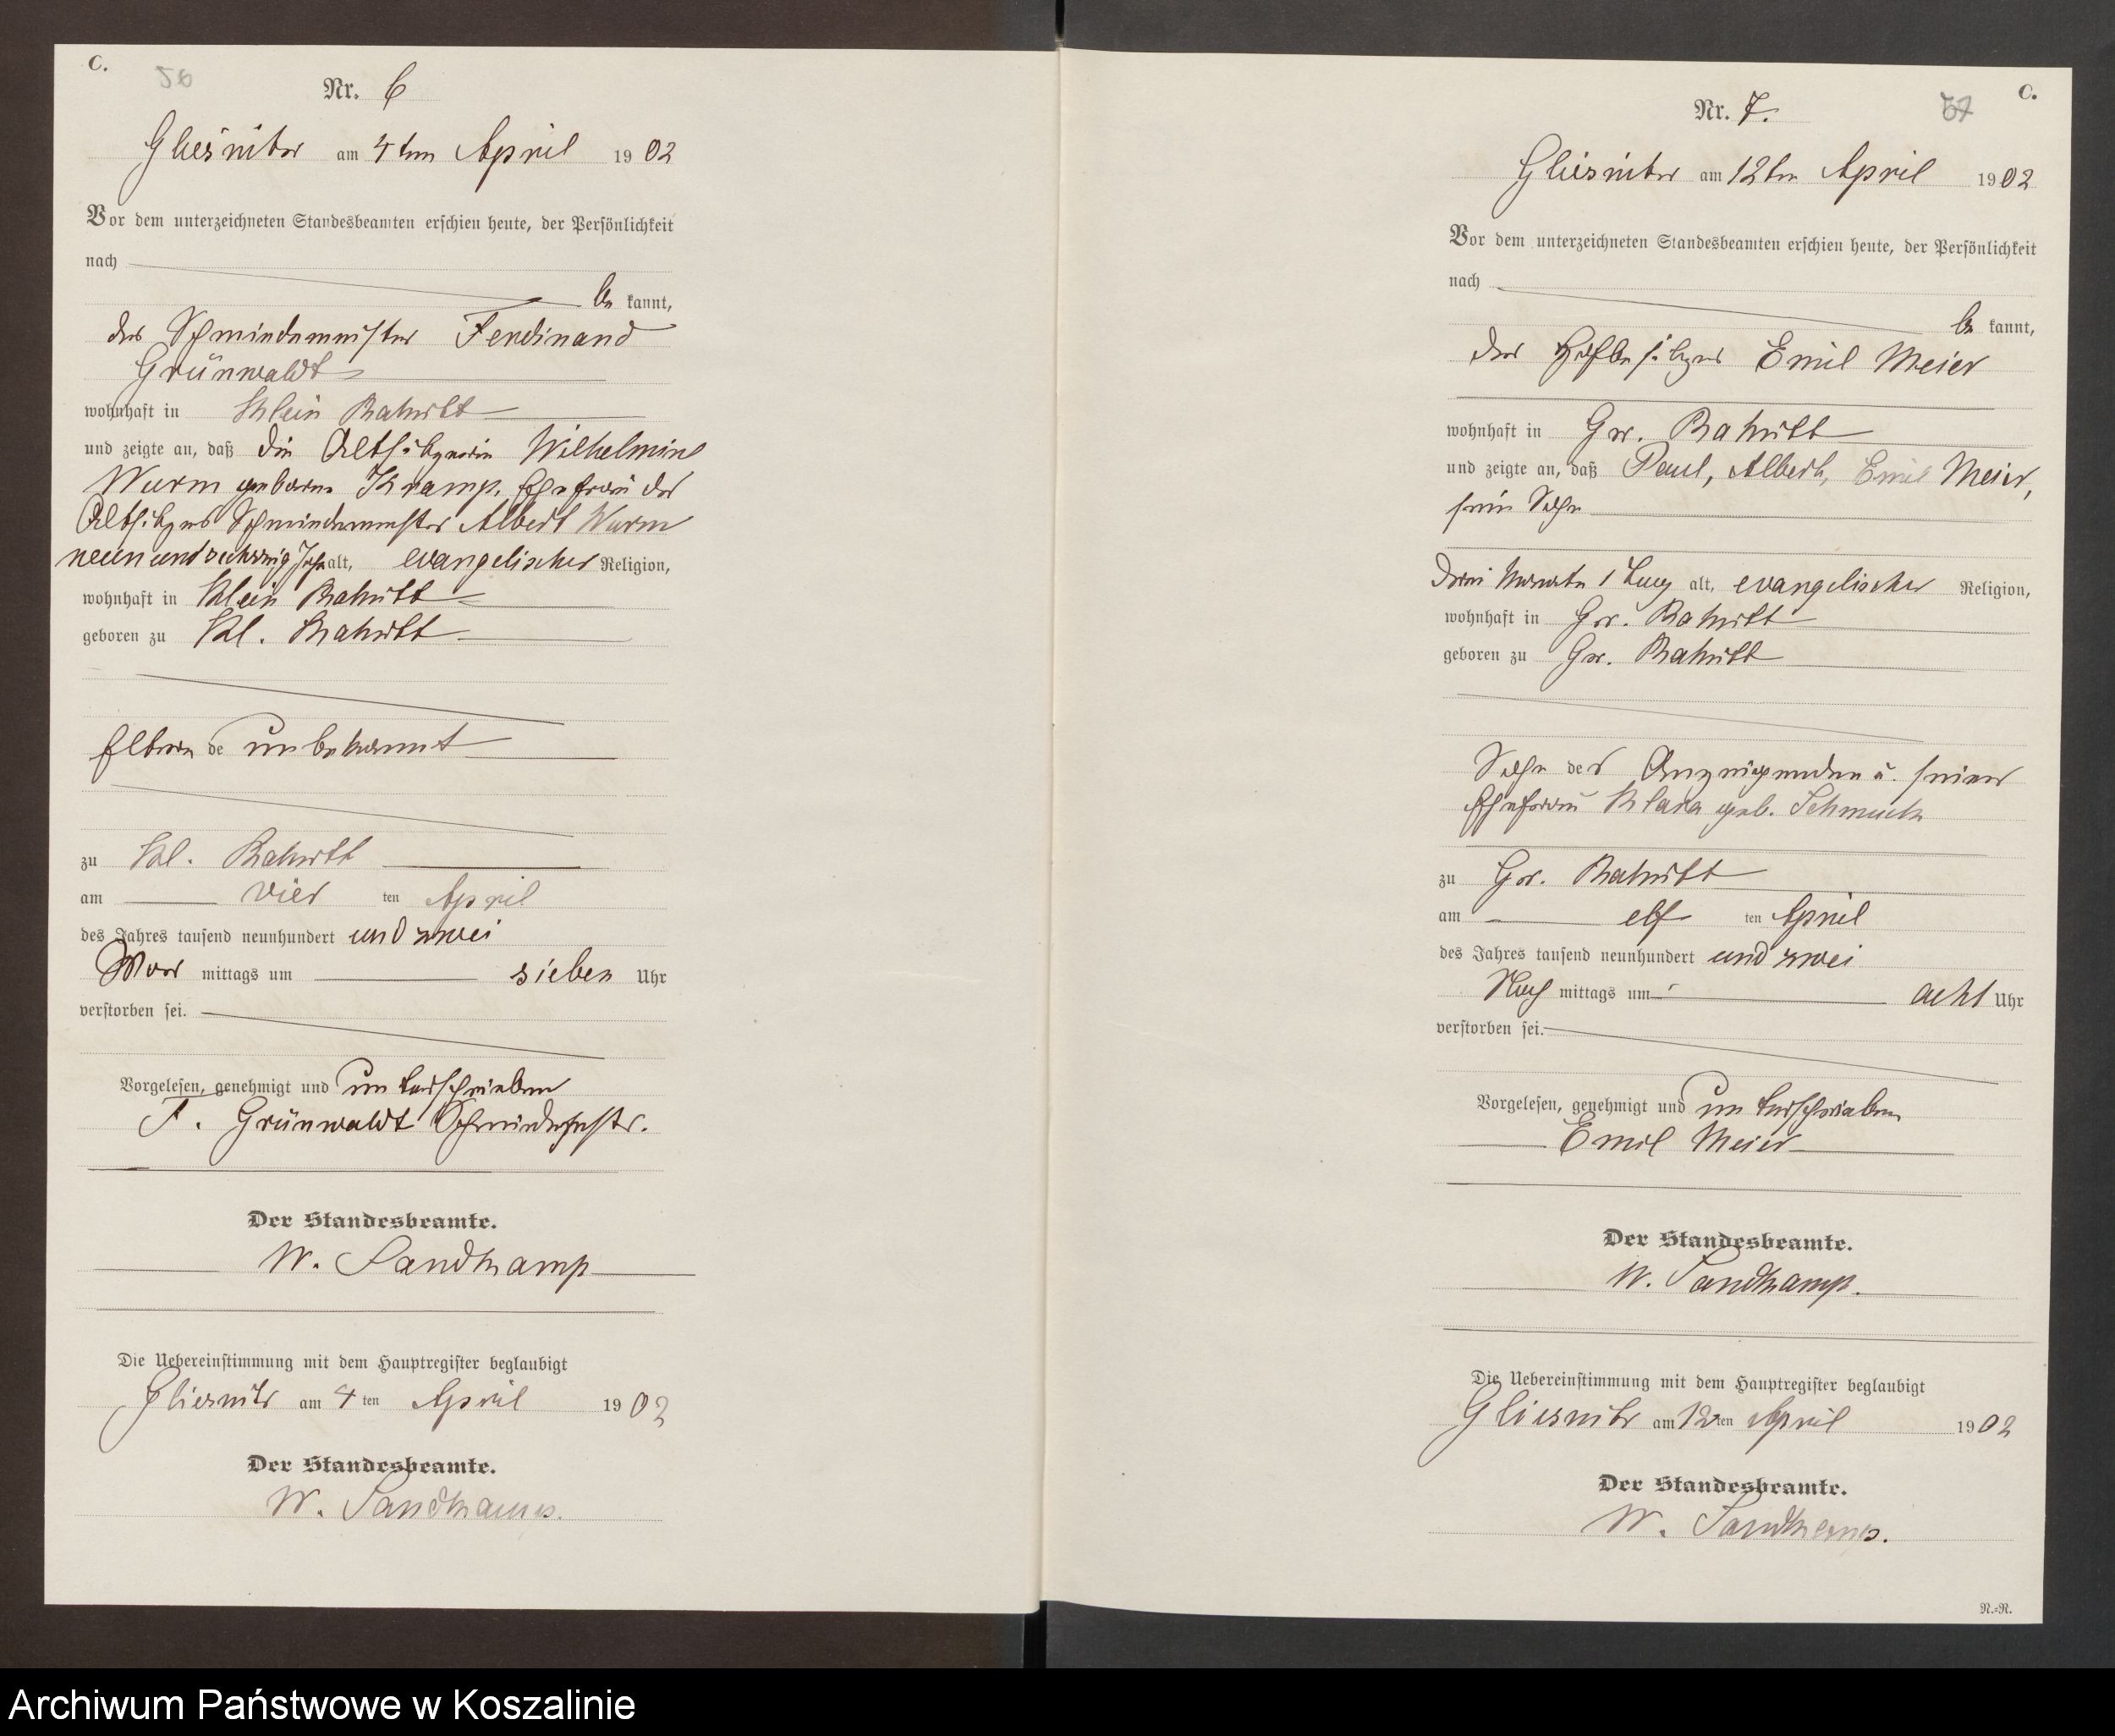 C.
56
Nr. 6
Gliesnitz am 4ten April 1902
Vor dem unterzeichneten Standesbeamten erschien heute, der Persönlichkeit
nach
be kannt,
der Schneidermeister Ferdinand
Grünwaldt
wohnhaft in Klein Rakitt
und zeigte an, daß die Altsitzerin Wilhelmine
Wurm geborne Kramp, Ehefrau des
Altsitzers Schneidermeister Albert Wurm
neunundsechzig Jahr alt, evangelischer Religion,
wohnhaft in Klein Rakitt
geboren zu Kl. Rakitt
Eltern de unbekannt
zu Kl. Rakitt
am vier ten April
des Jahres tausend neunhundert und zwei
Vor mittags um sieben Uhr
verstorben sei.
Vorgelesen, genehmigt und unterschrieben
F. Grünwaldt
Der Standesbeamte.
W. Sandkamp
Die Uebereinstimmung mit dem Hauptregister beglaubigt
Gliesnitz am 4 ten April 1902
Der Standesbeamte.
W. Sandkamp.
C.
57
Nr. 7.
Gliesnitz am 12ten April 1902
Vor dem unterzeichneten Standesbeamten erschien heute, der Persönlichkeit
nach
be kannt,
der Hofbesitzer Emil Meier
wohnhaft in Gr. Rakitt
und zeigte an, daß Paul, Albert, Emil Meier,
sein Sohn
drei Monate 1 Tag alt, evangelischer Religion,
wohnhaft in Gr. Rakitt
geboren zu Gr. Rakitt
Sohn des Anzeigenden u. seiner
Ehefrau Klara geb. Schmuck
zu Gr. Rakitt
am elf ten April
des Jahres tausend neunhundert und zwei
Nach mittags um acht Uhr
verstorben sei.
Vorgelesen, genehmigt und unterschrieben
Emil Meier
Der Standesbeamte.
W. Sandkamp.
Die Uebereinstimmung mit dem Hauptregister beglaubigt
Gliesnitz am 12ten April 1902
Der Standesbeamte.
W. Sandkamp.
N.=R.
Archiwum Państwowe w Koszalinie